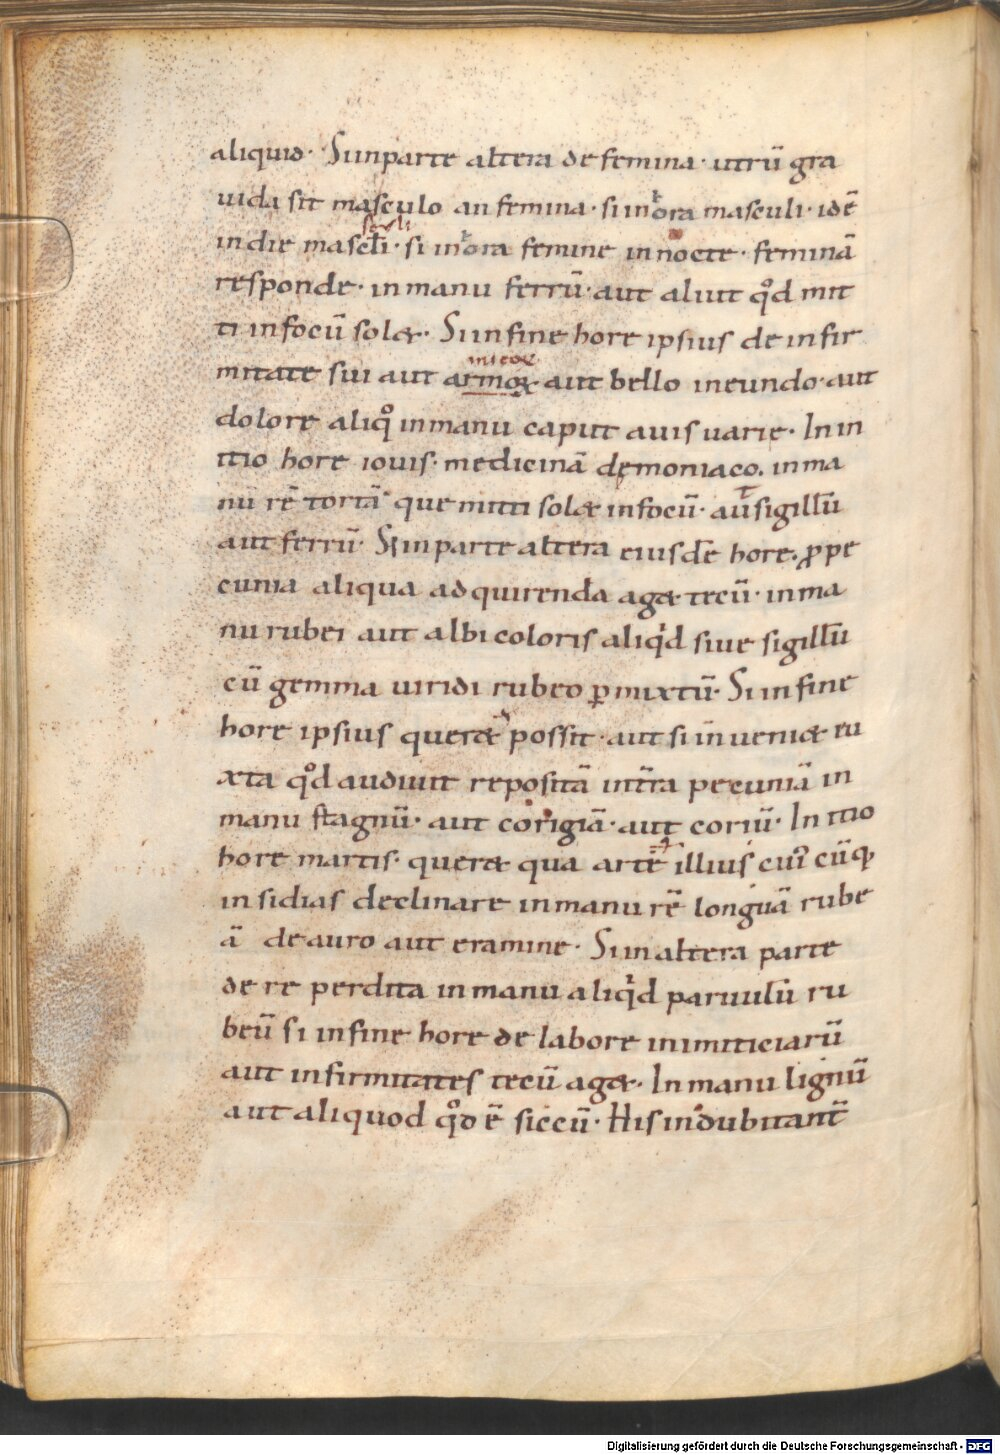 aliquid· Si inparte altera de femina· utrū gra
uida sit masculo an femina· si in hora masculi· idē
sculi
in die mascł̄i· si in hora femine in nocte· feminā
responde· in manu ferrū· aut aliut qͦd mit
ti in focū solet· Si in fine hore ipsius de infir
micoꝝ
mitate sui aut armoꝝ aut bello ineundo· aut
dolore aliqͦ in manu caput auis uarie· In in
itio hore iouis· medicinā demoniaco. in ma
nū rē tortā· que mitti solet in focū· aut sigillū
aut ferrū· Si in parte altera eiusdē hore· ꝓ pe
cunia aliqua adquirenda aget tecū· in ma
nu rubei aut albi coloris aliqͥd siue sigillū
cū gemma uiridi rubeo ꝑmixtū· Si in fine
hore ipsius querere possit· aut si inueniet eu
xta qͦd audiuit repositā in t̄ra pecuniā in
manu stagnū· aut corigiā· aut coriū· In itio
hore martis· queret qua arte illius cui cūqꝫ
insidias declinare in manu rē longuā rube
ā de auro aut eramine· Si in altera parte
de re perdita in manu aliqͥd paruulū ru
beū si in fine hore de labore inimiticiarū
aut infirmitates tecū aget· In manu lignū
aut aliquod qͦd ē siccū· His indubitant̄
Digitalisierung gefördert durch die Deutsche Forschungsgemeinschaft - DFG